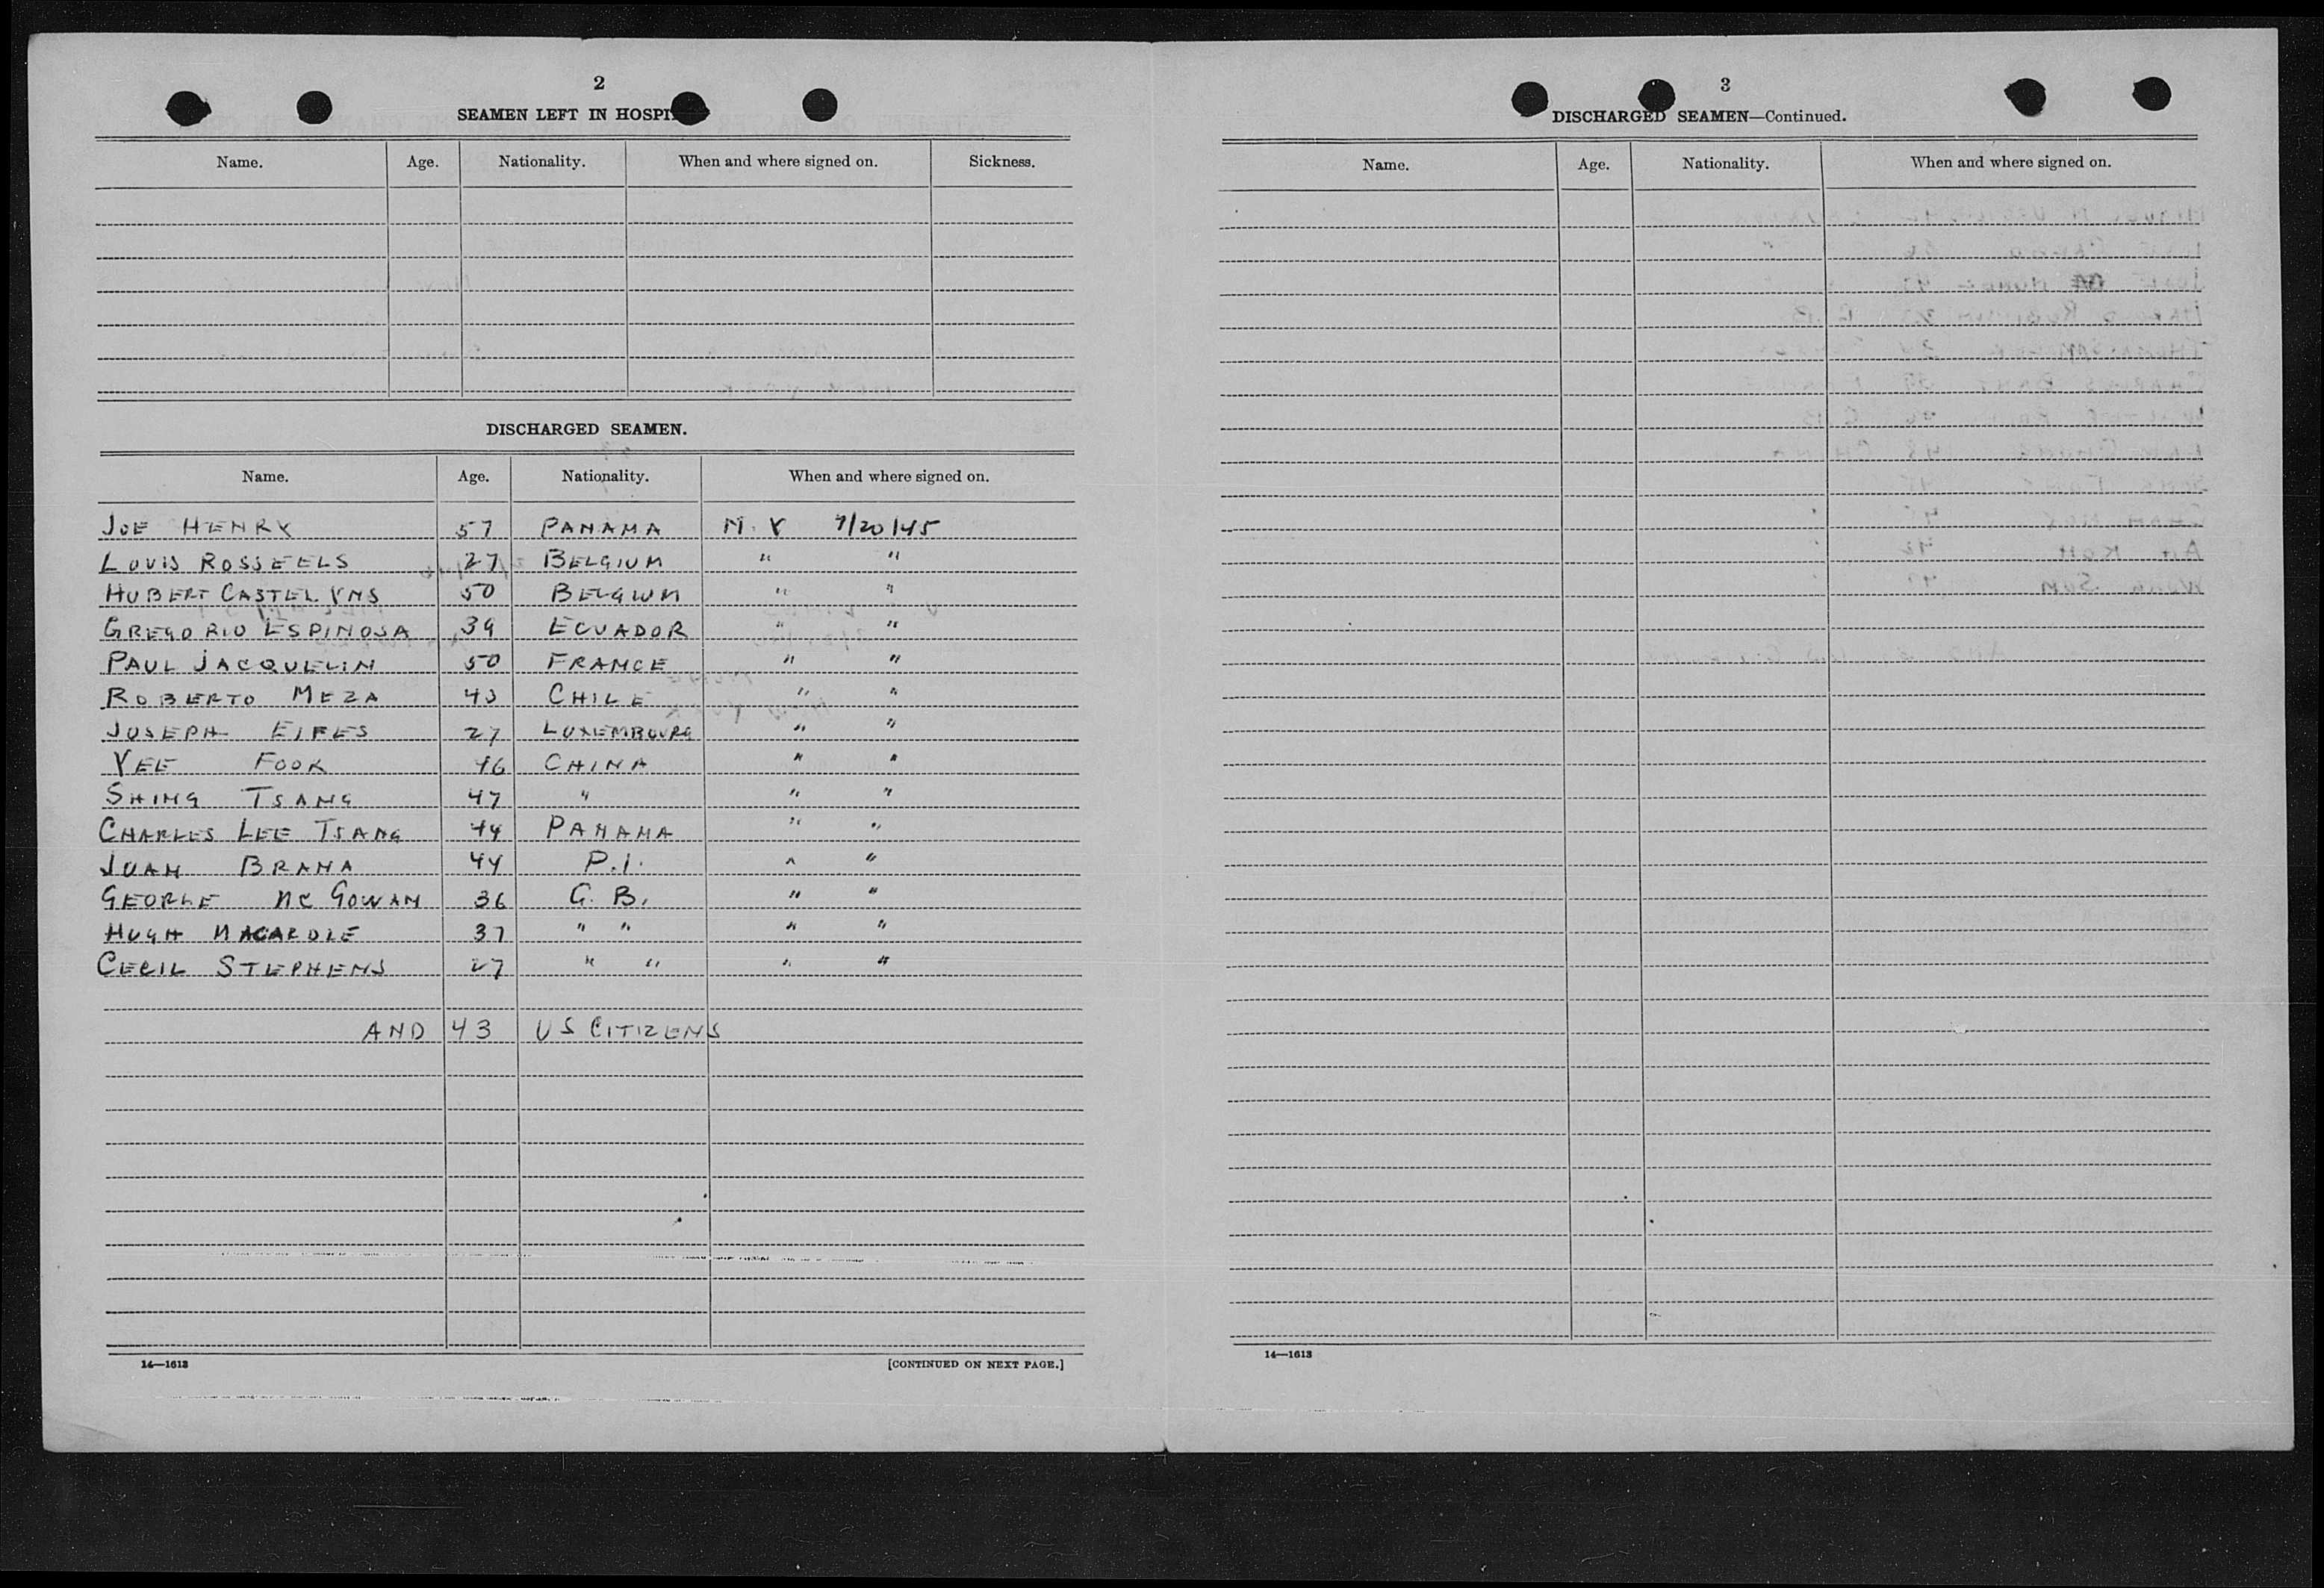 2
SEAMEN LEFT IN HOSPI
Name. Age. Nationality. When and where signed on. Sickness.
DISCHARGED SEAMEN.
Name. Age. Nationality. When and where signed on.
JOE HENRY 57 PANAMA N.Y 7/20/45
LOUIS ROSSEELS 27 BELGIUM " "
HUBERT CASTELYNS 50 BELGIUM " "
GREGORIO ESPINOSA 39 ECUADOR " "
PAUL JACQUELIN 50 FRANCE " "
ROBERTO MEZA 43 CHILE " "
JOSEPH EIFES 27 LUXEMBOURG " "
YEE FOOK 46 CHINA " "
SHING TSANG 47 " " "
CHARLES LEE TSANG 44 PANAMA " "
JUAN BRANA 44 P.I. " "
GEORGE MC GOWAN 36 G. B. " "
HUGH MACARDLE 37 " " " "
CECIL STEPHENS 27 " " " "
AND 43 US CITIZENS
14—1613 [CONTINUED ON NEXT PAGE.]
3
DISCHARGED SEAMEN—Continued.
Name. Age. Nationality. When and where signed on.
14—1613